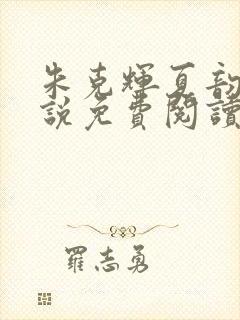 朱克輝夏韵
説免費閱讀
羅志勇